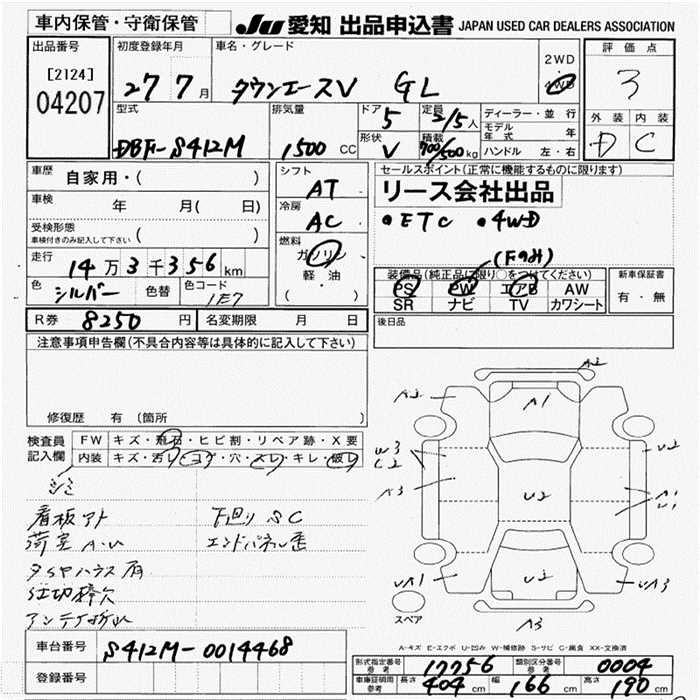 車内保管・守衛保管 JU 愛知 出品申込書 JAPAN USED CAR DEALERS ASSOCIATION
出品番号 初度登録年月 車名・グレード 2WD 4WD 評価点
[2124] 04207 27 7月 タウンエースV GL 3
型式 排気量 ドア 定員 ディーラー・並行 外装 内装
DBF-S412M 1500 CC 5 2/5人 モデル年式 年 D C
形状 V 積載 700/500kg ハンドル 左・右
車歴 自家用・( ) シフト AT セールスポイント(正常に機能するものに限ります)
リース会社出品
車検 年 月( 日) 冷房 AC •ETC •4WD
受検形態 車検付きのみ記入して下さい ( )
走行 14万3千356km 燃料 ガソリン 軽・油 ( ) (Fのみ)
装備品(純正品に限り○をつけてください) 新車保証書
色 シルバー 色替 色コード 1E7 PS PW エアB AW 有・無
SR ナビ TV カワシート
R券 8250円 名変期限 月 日 後日品
注意事項申告欄(不具合内容等は具体的に記入して下さい)
修復歴 有 (箇所 )
検査員記入欄 FW キズ・飛石・ヒビ割・リペア跡・X要
内装 キズ・汚レ・コゲ・穴・スレ・キレ・破レ
シミ
看板アト 下廻りSC
荷室A.U エンドパネル歪
タイヤハウス腐
仕切棒欠
アンテナ折れ
A2
A2 A1
W3 C2 U2
A3 U2 A1 U1
UA1 U2 UA3
スペア A3
A-キズ E-エクボ U-凹み W-補修跡 S-サビ C-腐食 XX-交換済
車台番号 S412M-0014468
登録番号
形式指定番号 参考 17756 類別区分番号 参考 0004
車庫証明用 参考 長さ 404cm 幅 166cm 高さ 190cm